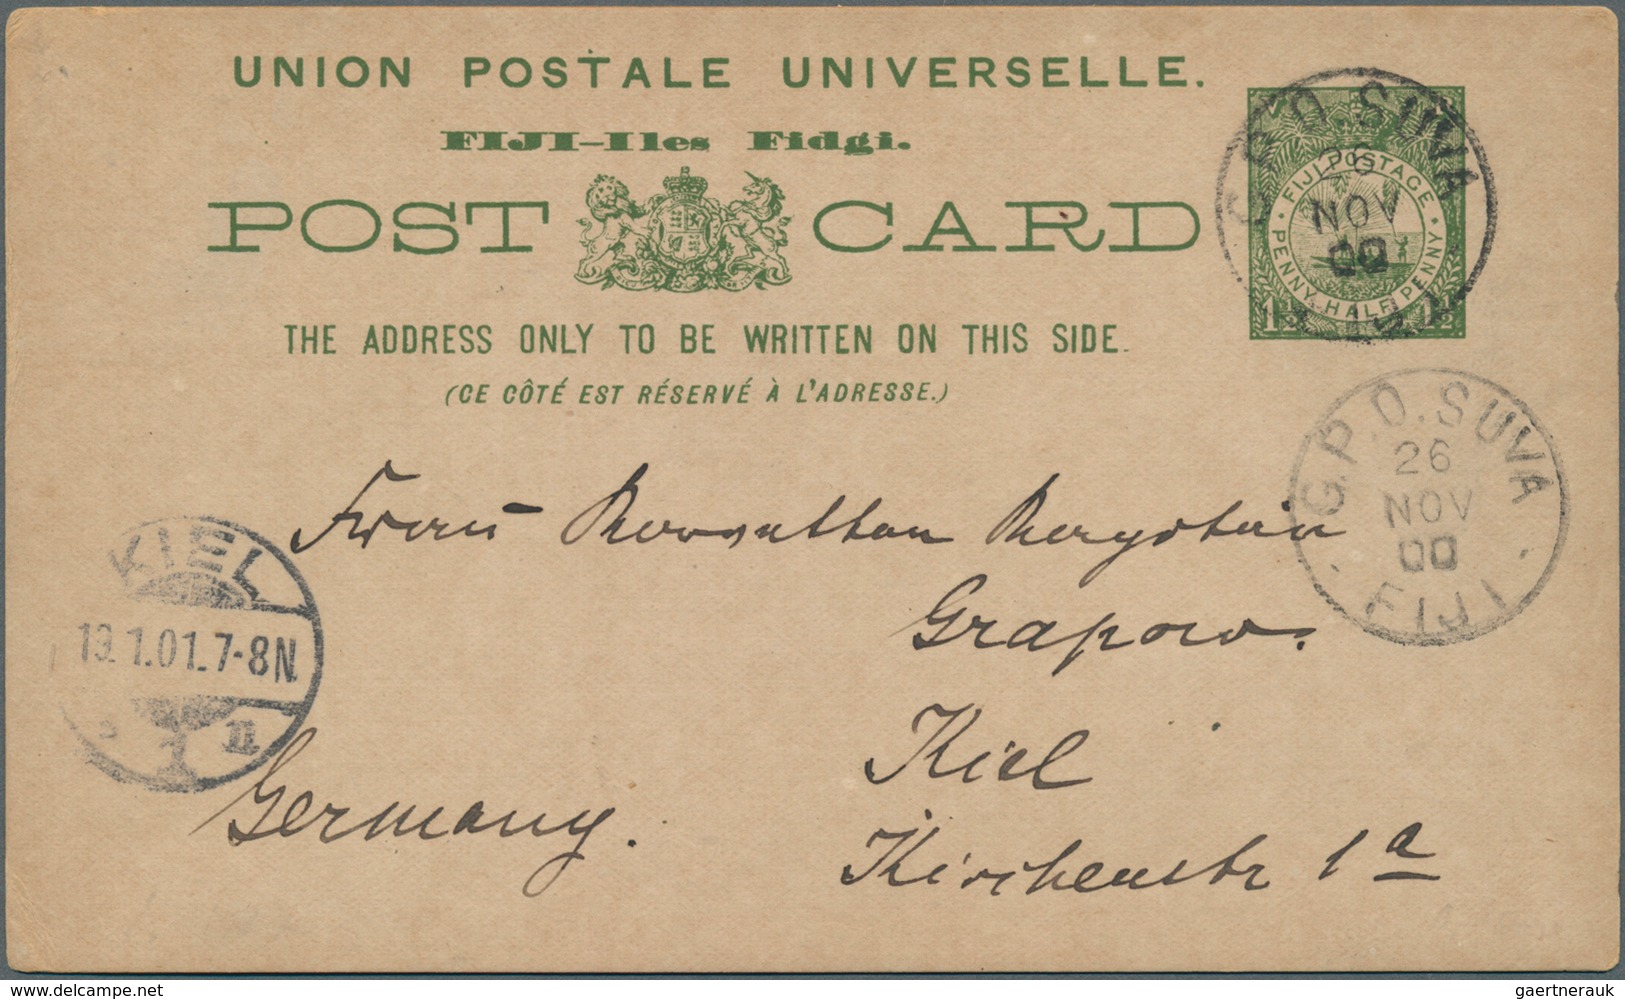 UNION POSTALE UNIVERSELLE.
FIJI-Iles Fidgi.
POST CARD
THE ADDRESS ONLY TO BE WRITTEN ON THIS SIDE.
(CE CÔTÉ EST RÉSERVÉ À L'ADRESSE.)
FIJI POSTAGE
PENNY HALF PENNY
1½ 1½
G.P.O. SUVA
26
NOV
00
G.P.O. SUVA
26
NOV
00
FIJI
KIEL
19.1.01.7-8N.
1 n
Frau
Grapow.
Kiel
Germany.
Kirchenstr 1a
delcampe.net
gaertnerauk